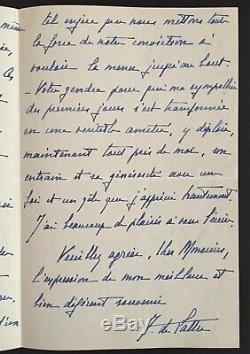 tel enjeu que nous mettons toute
la force de notre conviction à
vouloir la mener jusqu'au bout.
- Votre gendre pour qui ma sympathie
des premiers jours s'est transformée
en une véritable amitié, y déploie,
maintenant tout près de moi, un
entrain et se générosité avec un
et un zèle que j'apprécie hautement.
J'ai beaucoup de plaisir à vous l'écrire.
Veuillez agréer, cher Monsieur,
l'expression de mon meilleur et
bien déférent souvenir
J. de Lattre